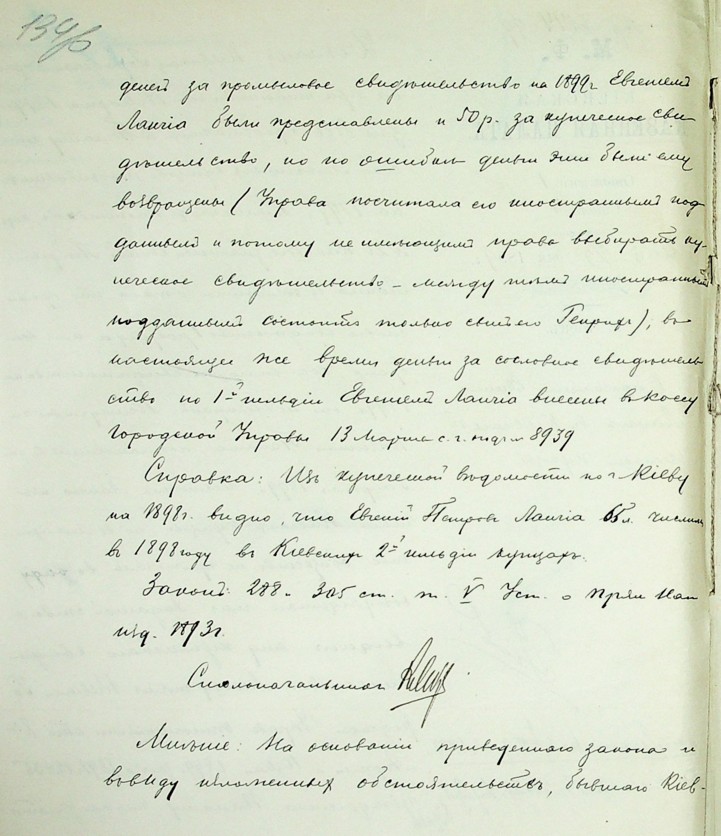 134об
денегъ за промысловое свидѣтельство на 1899г Евгеніемъ
Ланчіа были представлены и 50 р. за купеческое сви-
дѣтельство, но по ошибкѣ деньги эти были ему
возвращены (Управа посчитала его иностраннымъ под
даннымъ и потому не имѣющимъ права выбирать ку-
печеское свидѣтельство – между тѣмъ иностраннымъ
подданнымъ состоитъ только Генрихъ), въ
настоящее же время деньги за сословное свидѣтель
ство по 1й гильдіи Евгеніемъ Ланчіа внесены въ кассу
Городской Управы 13 Марта с. г. подъ № 8939
Справка: Изъ купеческой вѣдомости по г. Кіеву
на 1898г. видно, что Евгеній Петровъ Ланчіа 65 л. числился
въ 1898 году въ Кіевскихъ 2й гильдіи купцахъ.
Законъ: 288 и 305 ст. т. V Уст. о прям Нал
изд. 1893г.
Столоначальникъ
Мнѣніе: На основаніи приведеннаго закона и
ввиду изложенныхъ обстоятельствъ, бывшаго Кіев-